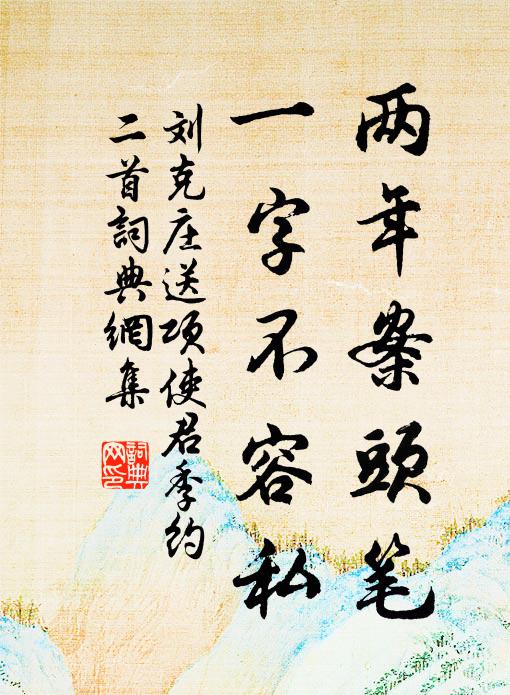 两年案頭笔
一字不容私
刘克庄送项使君季约
二首詞典網集
詞典
网印